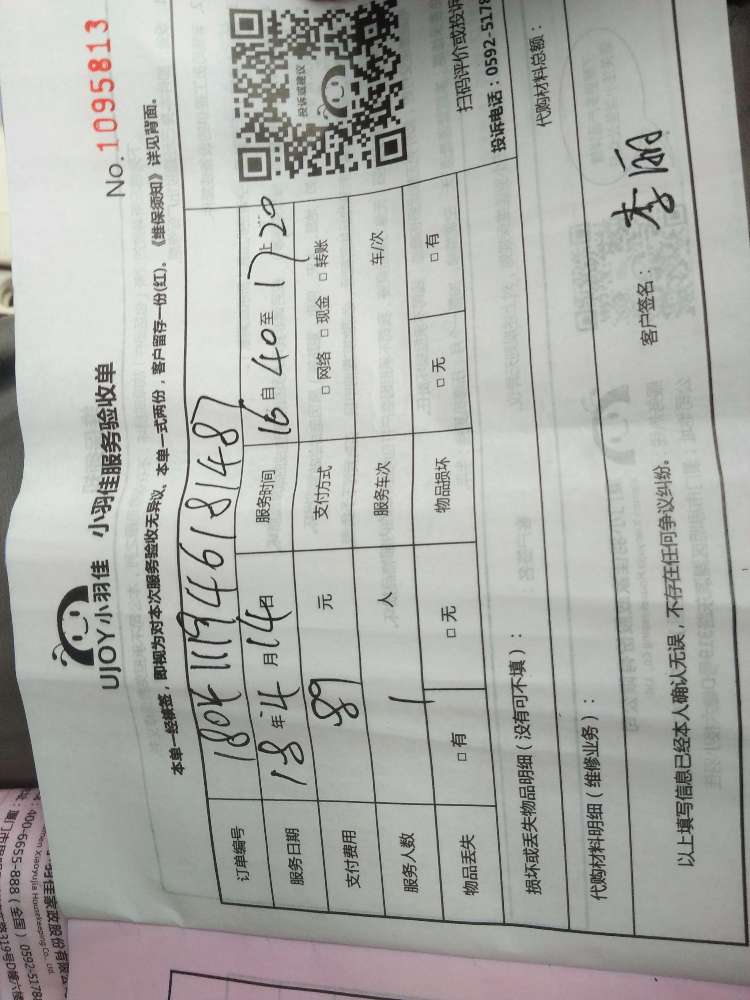 No. 1095813
UJOY小羽佳 小羽佳服务验收单
本单一经续签，即视为对本次服务验收无异议、本单一式两份，客户留存一份(红)。《维保须知》详见背面。
订单编号
服务日期 18年4月14日 服务时间 16自40至17 20
支付费用 89元 支付方式 □ 网络 □ 现金 □ 转账
服务人数 1人 服务车次 车/次
物品丢失 □ 有 □ 无 物品损坏 □ 无 □ 有
投诉或建议
扫码评价或投诉
投诉电话：0592-5178
损坏或丢失物品明细（没有可不填）：
代购材料明细（维修业务）： 代购材料总额：
以上填写信息已经本人确认无误，不存在任何争议纠纷。
客户签名： 李丽
400-6655-888（全国）0592-5178
Xiamen Xiaoyujia Housekeeping Co., Ltd.